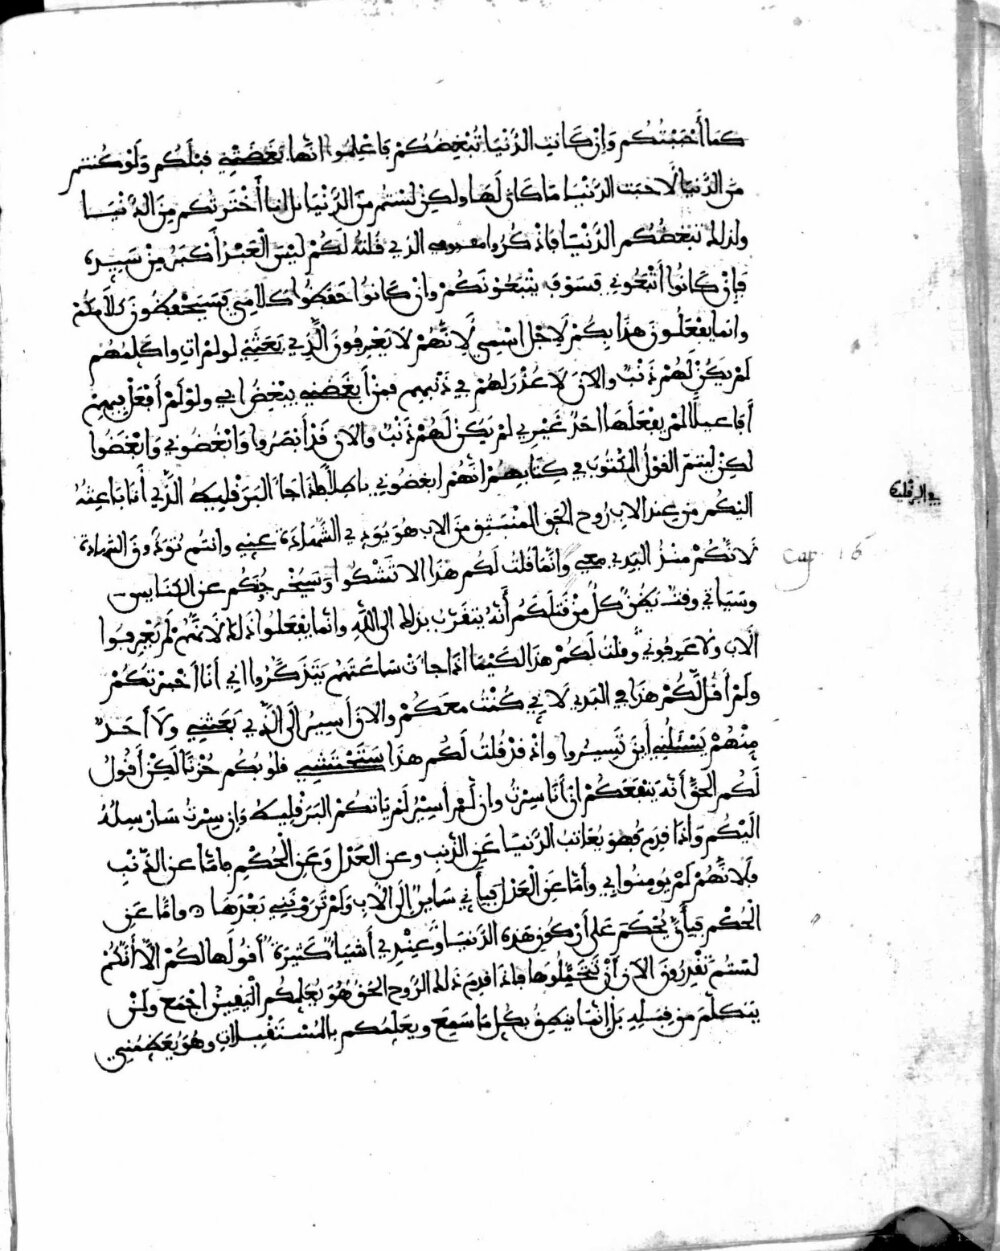 كما أحببتكم وإن كانت الدنيا تبغضكم فاعلموا انها بغضتني قبلكم ولو كنتم
من الدنيا لاحبت الدنيا ما كان لها ولكن لستم من الدنيا بل انا أخترتكم من الدنيا
ولذلك تبغضكم الدنيا فاذكروا الذي قلته لكم ليس العبد أكبر من سيده
فإن كانوا أتبعوني فسوف يتبعونكم وان كانوا حفظوا كلامي فسيحفظون كلامكم
وانما يفعلون هذا بكم لاجل اسمي لانهم لا يعرفون الذي بعثني لو لم ات واكلمهم
لم يكن لهم ذنب والان لا عذر لهم في ذنبهم فمن أبغضني يبغض ابي ولو لم أفعل فيهم
أفاعيلا لم يفعلها احد غيري لم يكن لهم ذنب والان قد أبصروا وابغضوني وابغضوا
لكن ليتم القول المكتوب في كتابهم انهم ابغضوني باطلا فاذا جا البرقليط الذي أنا باعثه
في البرقليط
اليكم من عند الاب روح الحق المنبثق من الاب هو يودي الشهادة عني وانتم تودون الشهادة
لانكم منذ البدي معي وانما قلت لكم هذا الا تشكوا وسيخرجنكم عن الكنايس
Cap. 16
وسياتي وقت يظن كل من قتلكم أنه يتقرب بذلك الى الله وانما يفعلوا ذلك لانهم لم يعرفوا
الاب ولا عرفوني وقلت لكم هذا لكيما اذا جات ساعتهم يتذكروا اني أنا أخبرتكم
ولم أقل لكم هذا في البدي لاني كنت معكم والان أسير الى الذي بعثني ولا أحد
منهم يسئلني أين تسير واذ قد قلت لكم هذا قلوبكم حزنا لكن أقول
لكم الحق أنه ينفعكم ان أنا سرت وان لم أسير لم ياتكم البرقليط وإن سرت سارسله
اليكم واذا قدم فهو يعاتب الدنيا عن الذنب وعن العدل وعن الحكم فاما عن الذنب
فلانهم لم يومنوا بي وأما عن العدل فياني ساير إلى الاب ولم تروني بعدها واما عن
الحكم فيأن يحكم على أركون هذه الدنيا وعندي أشيا كثيرة أقولها لكم الا أنكم
لستم تقدرون الان أن تحتملوها فاذا قدم ذلك الروح الحق هو يعلمكم اليقين اجمع وليس
يتكلم من قبله بل إنما ينطق بكل ما سمع ويعلمكم بالمستقبلات وهو يعظمني